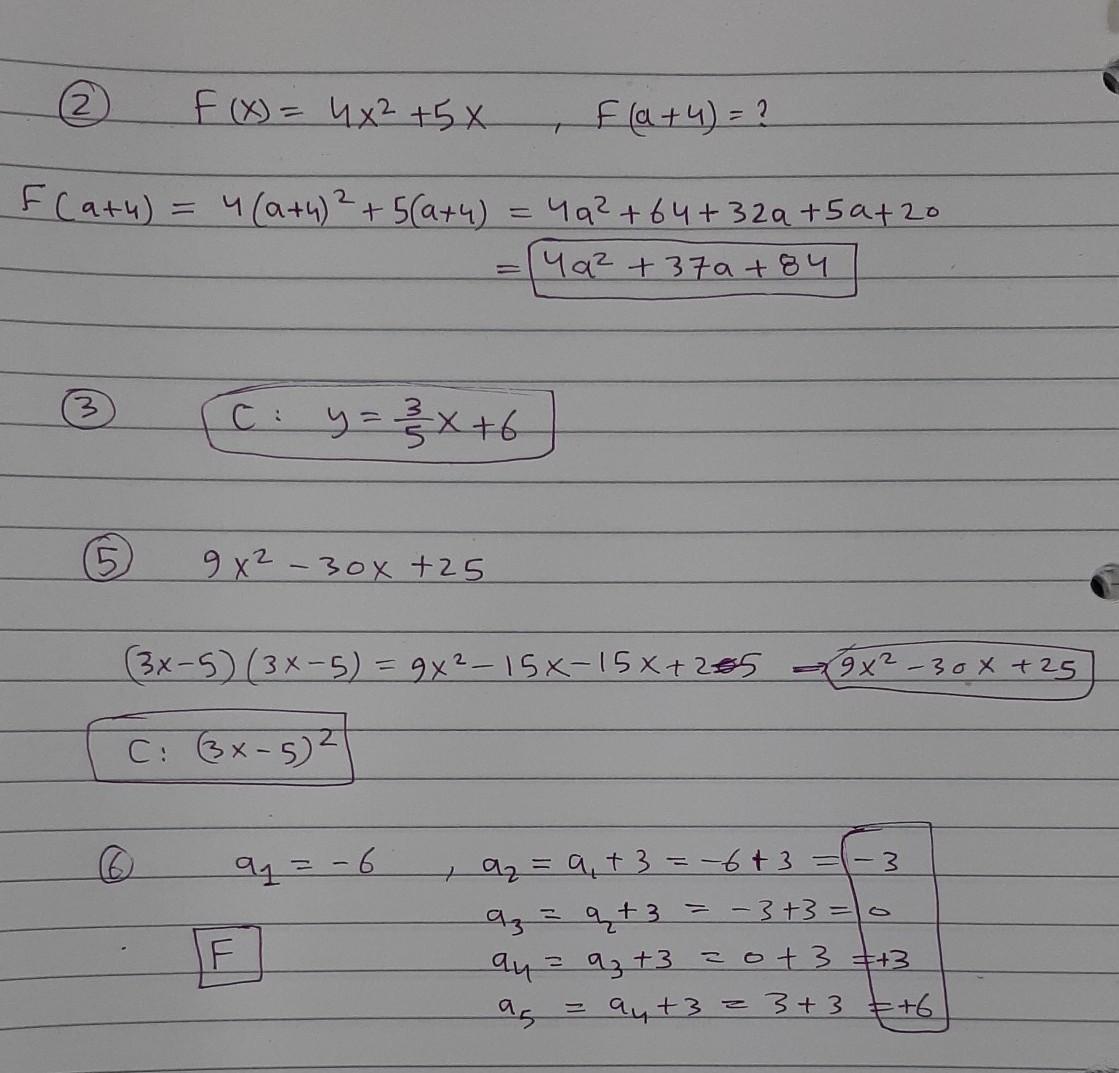 ② F(x) = 4x² + 5x , F(a+4) = ?
F(a+4) = 4(a+4)² + 5(a+4) = 4a² + 64 + 32a + 5a + 20
= 4a² + 37a + 84
③ C: y = 3/5 x + 6
⑤ 9x² - 30x + 25
(3x-5)(3x-5) = 9x² - 15x - 15x + 25 → 9x² - 30x + 25
C: (3x-5)²
⑥ a₁ = -6 , a₂ = a₁ + 3 = -6 + 3 = -3
a₃ = a₂ + 3 = -3 + 3 = 0
F a₄ = a₃ + 3 = 0 + 3 = +3
a₅ = a₄ + 3 = 3 + 3 = +6